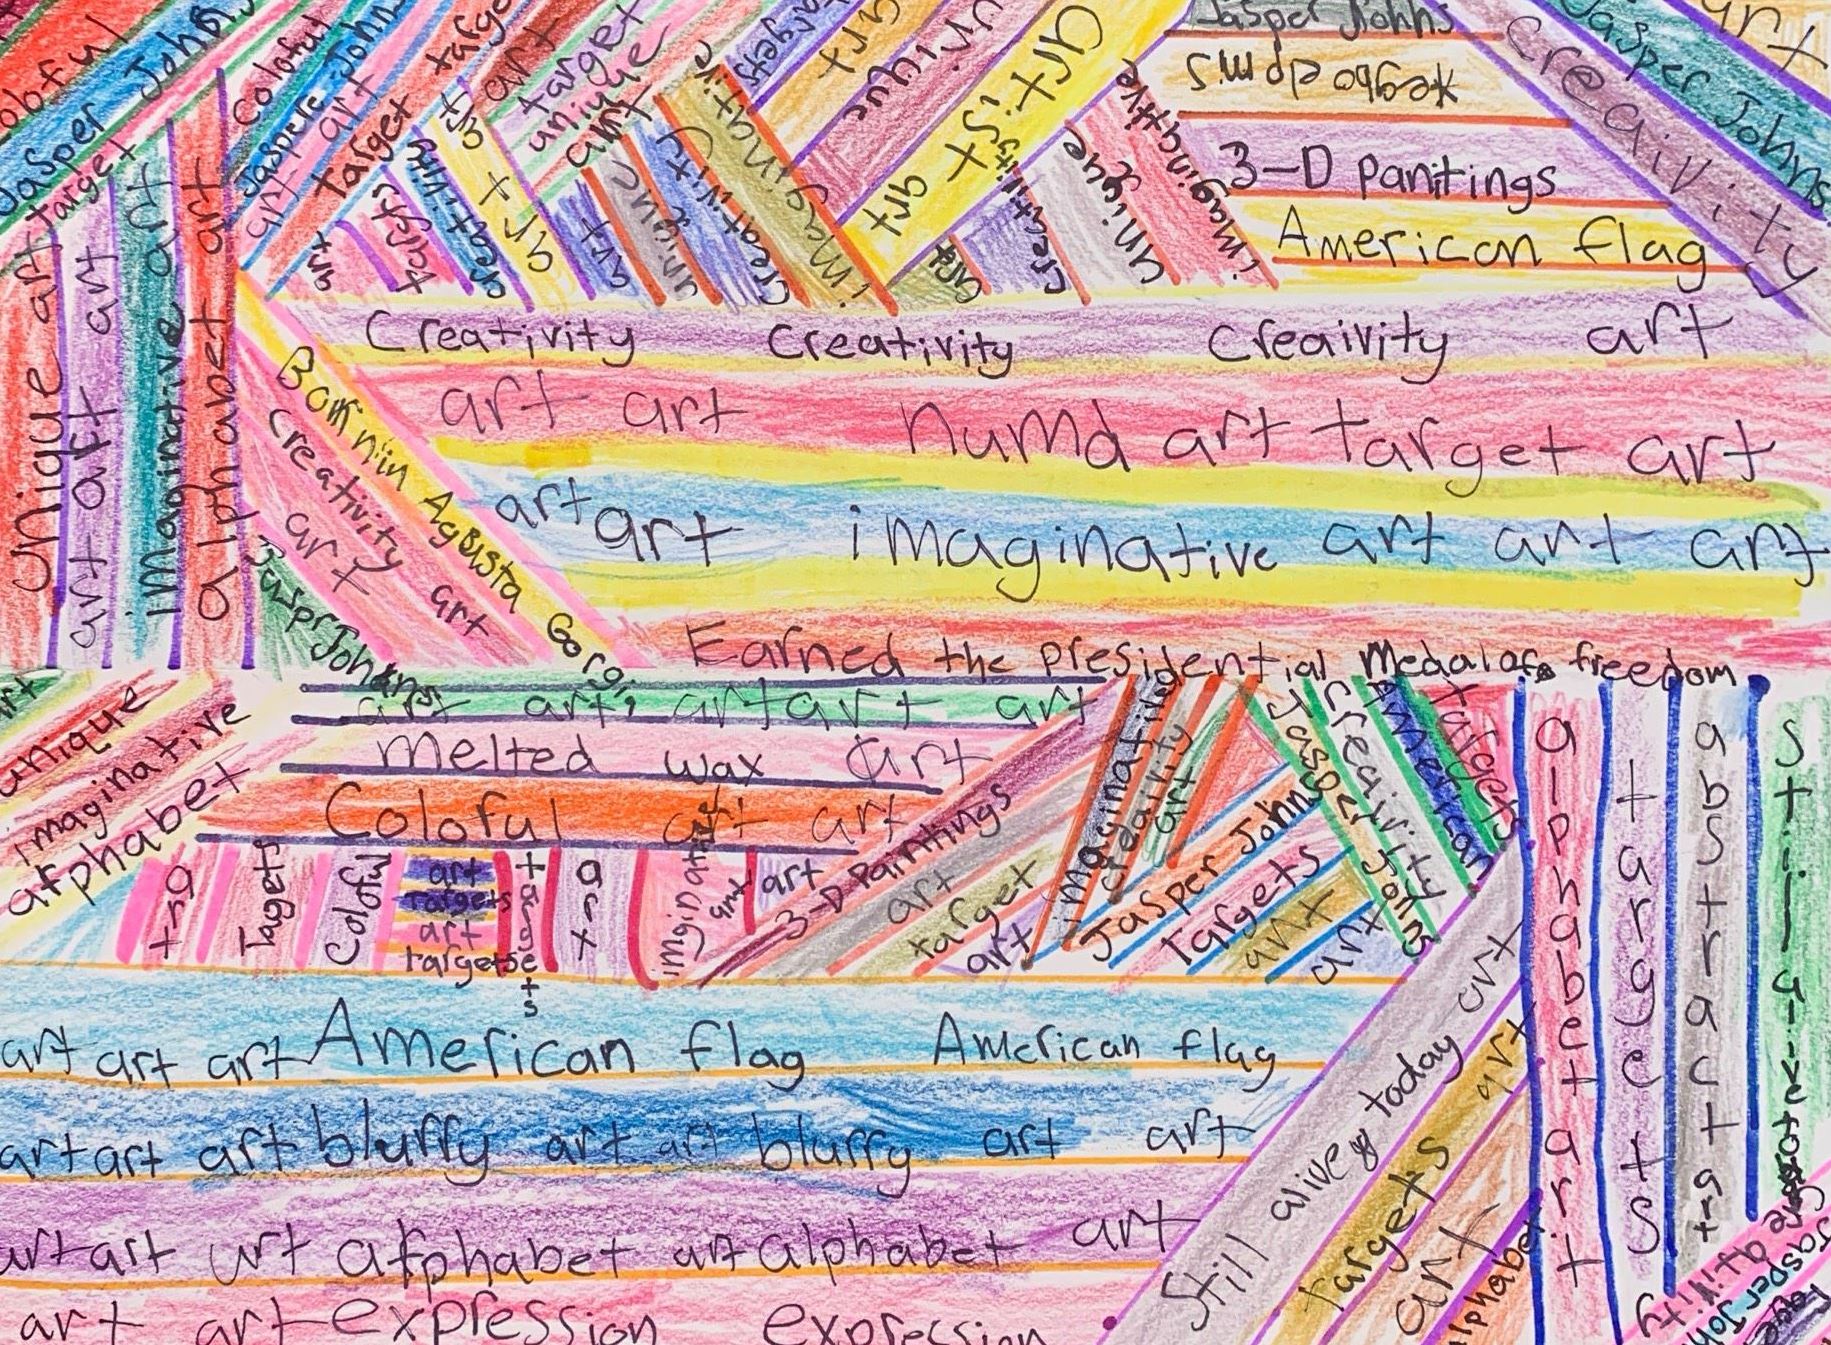 Jasper Johns
unique art
art art
imaginative art
alphabet art
Jasper Johns
target
Colofut
art
Target
art
target
unique
art
unique
art
Artist art
Jasper Johns
3-D Panitings
American flag
Creaivity
Jasper Johns
art
art
art
art
unique
Creativity
imaginative
art
unique
imaginative
Creativity Creativity Creaivity art
art art numd art target art
art art imaginative art art art
Bornin AgBusta Gorgi
Creativity art
art
JasprJohns
Earned the presidential Medalof freedom
art art art art art
melted wax art
Coloful art art
unique
imaginative
alphabet
art
Tagets
Coloful
art
Targets
art
targets
targets
art
imginative
art
art
3-D Pantings
art
target
art
imaginative
creaility
art
Jasper John
Targets
art
art
Jasper Johns
Creairity
American
Targets
alphabet art
targets
abstract art
art art art American flag American flag
art art art blurry art art blurry art art
art art art alphabet art alphabet art
art art expression expression
Still alive today art
Targets art
art
alphabet
Jasper John